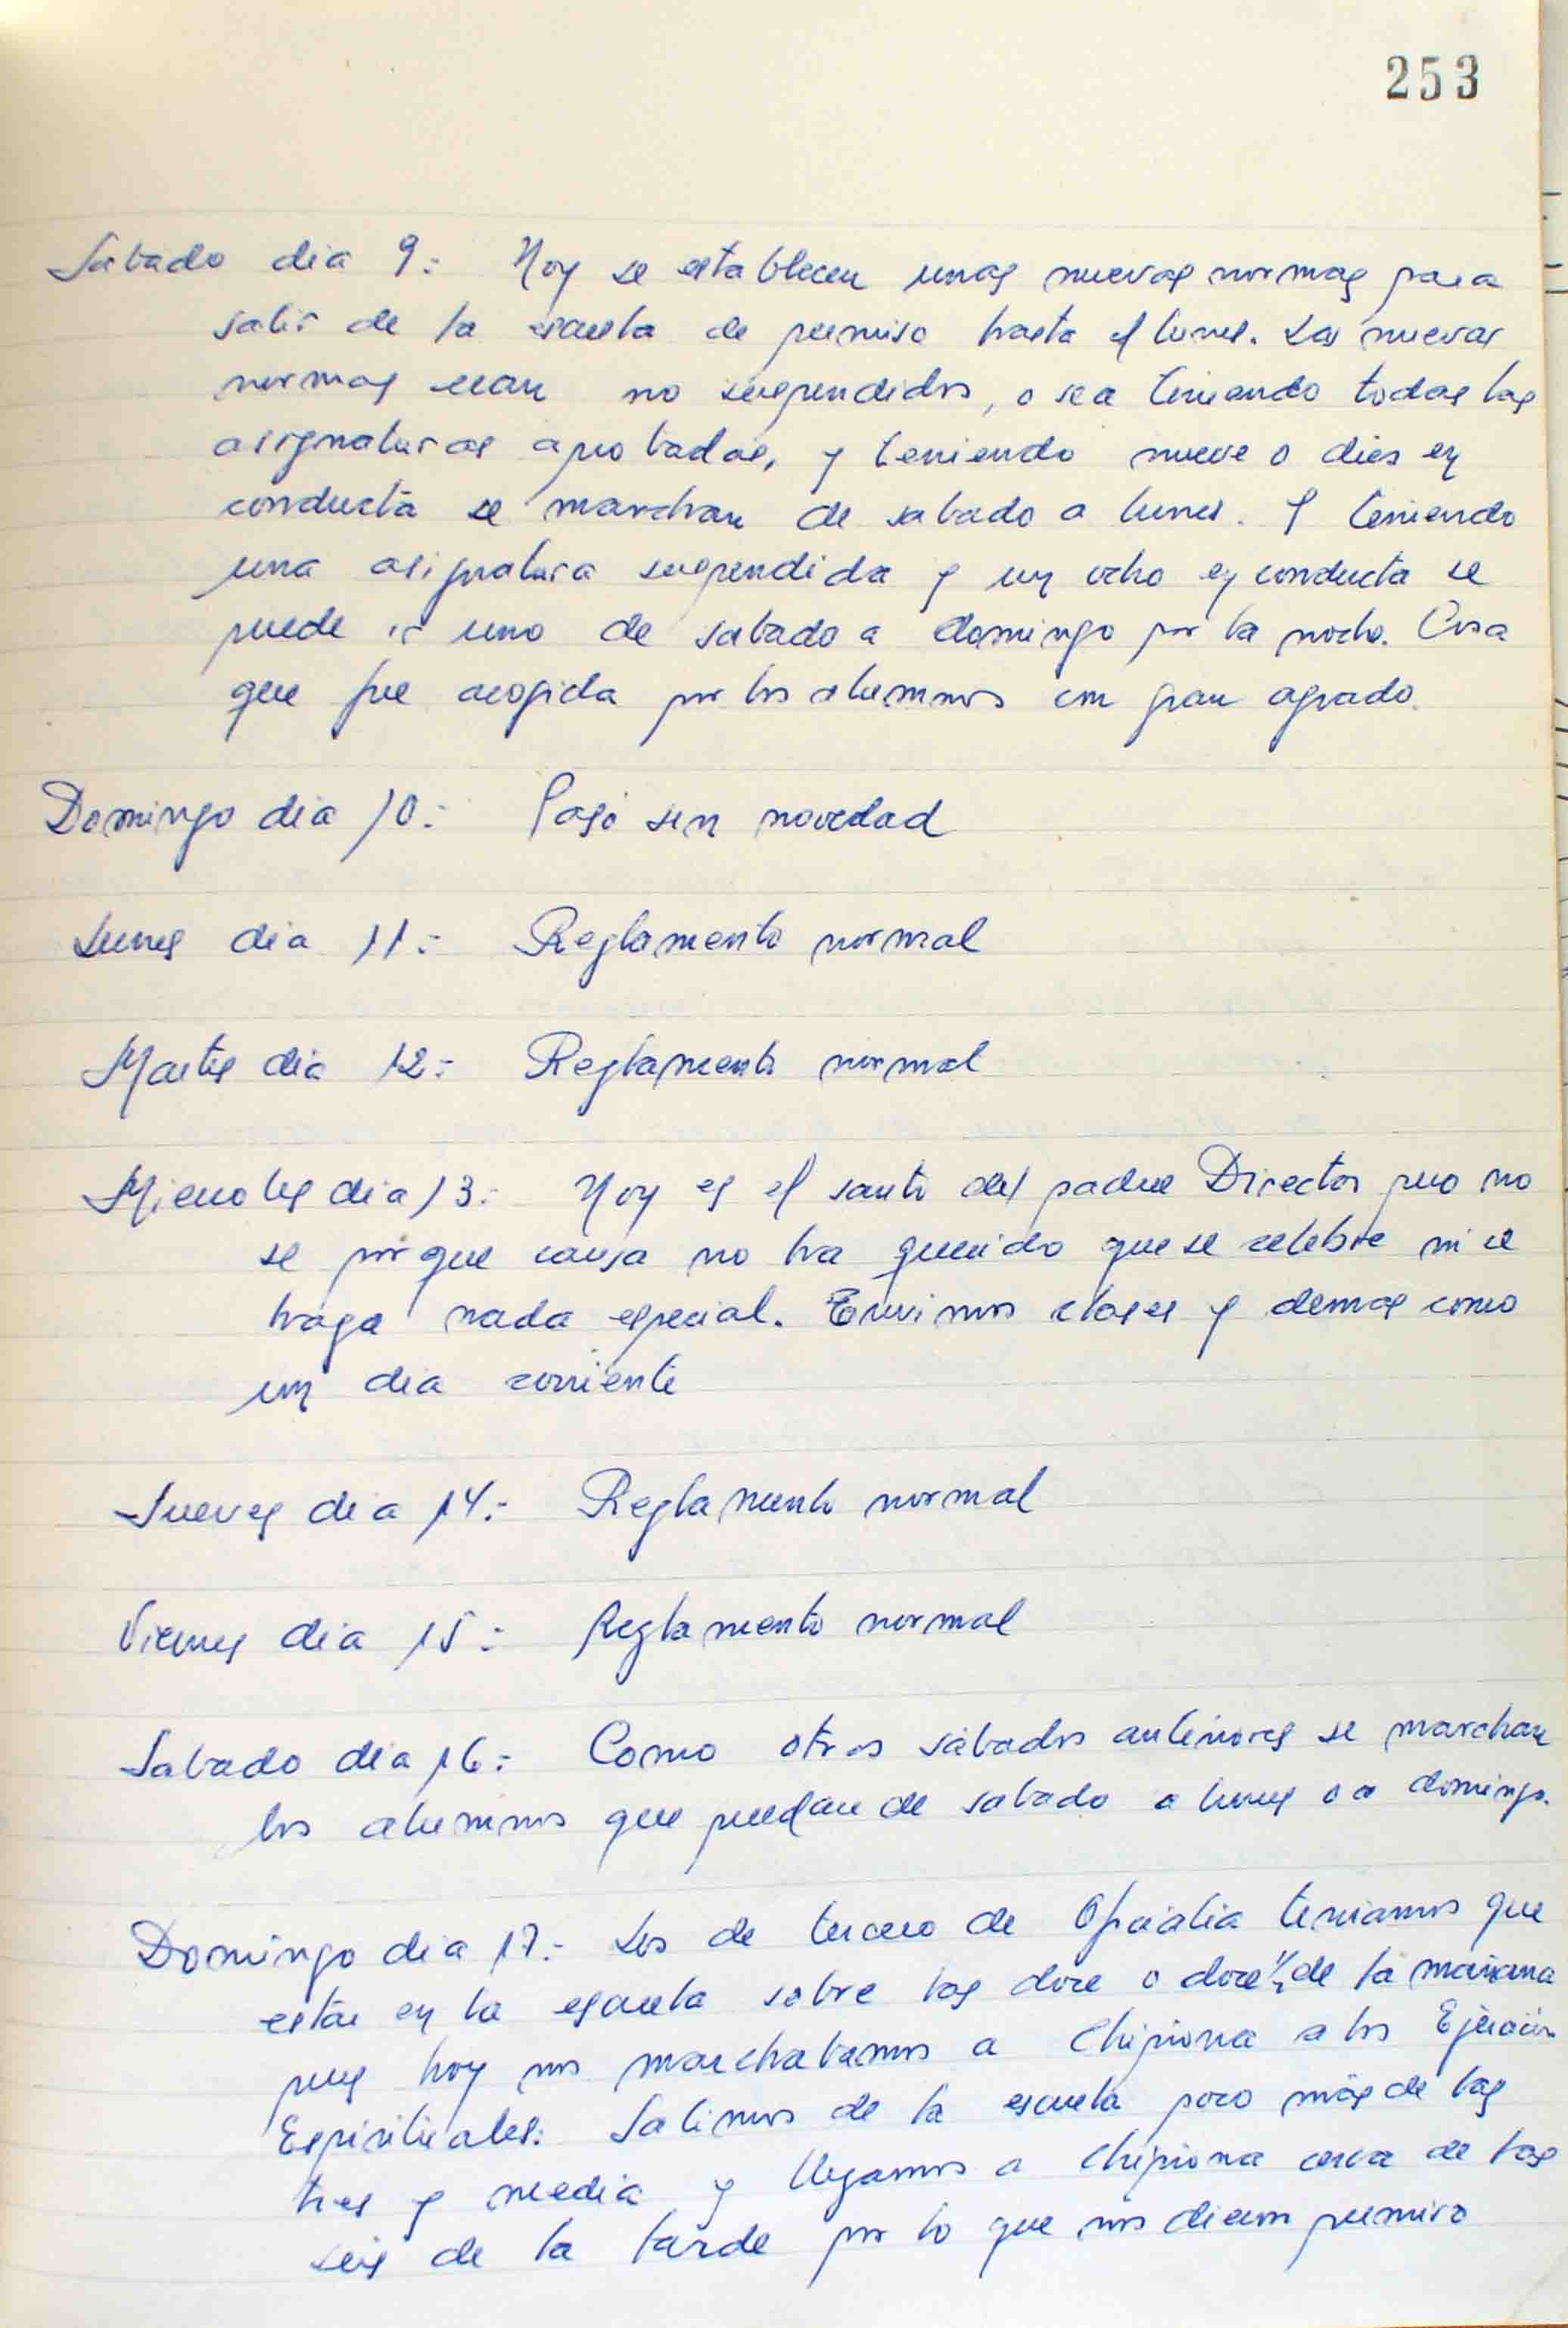 253
Sabado dia 9:- Hoy se establecen unas nuevas normas para
salir de la escuela de permiso hasta el lunes. Las nuevas
normas eran no suspendidos, o sea teniendo todas las
asignaturas aprobadas, y teniendo nueve o dies en
conducta se marchan de sabado a lunes. Y teniendo
una asignatura suspendida y un ocho en conducta se
puede ir uno de sabado a domingo por la noche. Cosa
que fue acogida por los alumnos con gran agrado.
Domingo dia 10:- Pasó sin novedad
Lunes dia 11:- Reglamento normal
Martes dia 12:- Reglamento normal
Miercoles dia 13:- Hoy es el santo del padre Director pero no
se por que causa no ha querido que se celebre ni se
haga nada especial. Tuvimos clases y demas como
un dia corriente
Jueves dia 14:- Reglamento normal
Viernes dia 15:- Reglamento normal
Sabado dia 16:- Como otros sábados anteriores se marchan
los alumnos que puedan de sabado a lunes o a domingo.
Domingo dia 17:- Los de tercero de Oficialia teniamos que
estar en la escuela sobre las doce o doce ½ de la mañana
pues hoy nos marchabamos a Chipiona a los Ejercicios
Espirituales. Salimos de la escuela poco más de las
tres y media y llegamos a Chipiona cerca de las
seis de la tarde por lo que nos dieron permiso